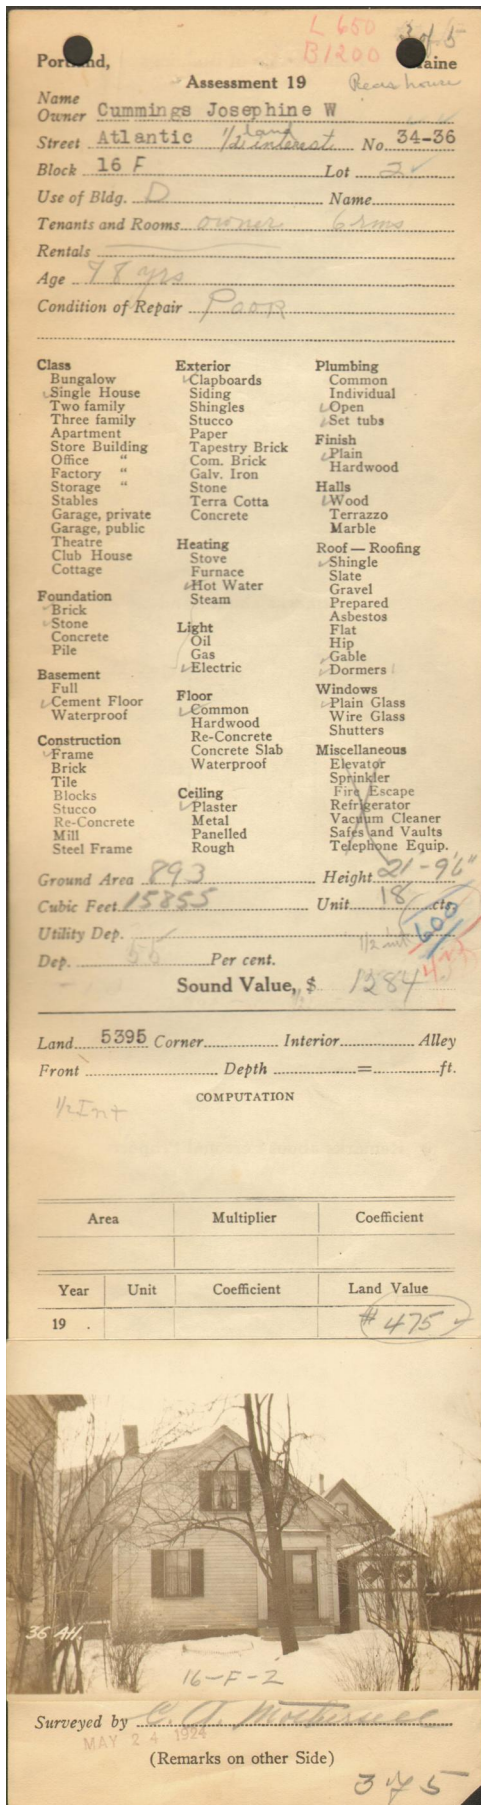 L 650 3 of 5
B 1200
Portland, Maine
Assessment 19 Rear house
Name
Owner Cummings Josephine W
Street Atlantic 1/2 land interest No. 34-36
Block 16 F Lot 2
Use of Bldg. D Name
Tenants and Rooms owner 6 rms
Rentals
Age 78 yrs
Condition of Repair Poor
Class
Bungalow
Single House
Two family
Three family
Apartment
Store Building
Office "
Factory "
Storage "
Stables
Garage, private
Garage, public
Theatre
Club House
Cottage
Foundation
Brick
Stone
Concrete
Pile
Basement
Full
Cement Floor
Waterproof
Construction
Frame
Brick
Tile
Blocks
Stucco
Re-Concrete
Mill
Steel Frame
Exterior
Clapboards
Siding
Shingles
Stucco
Paper
Tapestry Brick
Com. Brick
Galv. Iron
Stone
Terra Cotta
Concrete
Heating
Stove
Furnace
Hot Water
Steam
Light
Oil
Gas
Electric
Floor
Common
Hardwood
Re-Concrete
Concrete Slab
Waterproof
Ceiling
Plaster
Metal
Panelled
Rough
Plumbing
Common
Individual
Open
Set tubs
Finish
Plain
Hardwood
Halls
Wood
Terrazzo
Marble
Roof — Roofing
Shingle
Slate
Gravel
Prepared
Asbestos
Flat
Hip
Gable
Dormers 1
Windows
Plain Glass
Wire Glass
Shutters
Miscellaneous
Elevator
Sprinkler
Fire Escape
Refrigerator
Vacuum Cleaner
Safes and Vaults
Telephone Equip.
Ground Area 893 Height 21-9'6"
Cubic Feet 15855 Unit 18 cts.
Utility Dep. 1/2 int 600
Dep. 55 Per cent.
Sound Value, $ 1284
Land 5395 Corner Interior Alley
Front Depth = ft.
1/2 Int COMPUTATION
Area Multiplier Coefficient
Year Unit Coefficient Land Value
19 . # 475
36 At.
16-F-2
Surveyed by C. A.
MAY 24 1924
(Remarks on other Side)
375